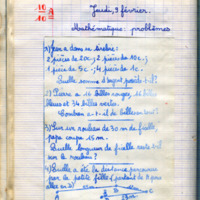 10
10 A
Jeudi, 9 février.
Mathématique: problèmes
1) Jean a dans sa tirelire:
2 pièces de 20c; 2 pièces de 10c;
1 pièce de 5c; 4 pièces de 1c.
Quelle somme d'argent possède-t-il?
2) Pierre a 16 billes rouges, 16 billes
bleues et 34 billes vertes.
Combien a-t-il de billes en tout?
3) Sur un rouleau de 30 m de ficelle,
papa coupe 15 m.
Quelle longueur de ficelle reste-t-il
sur le rouleau?
4) Quelle a été la distance parcourue
par la petite fille partant de A pour
aller en